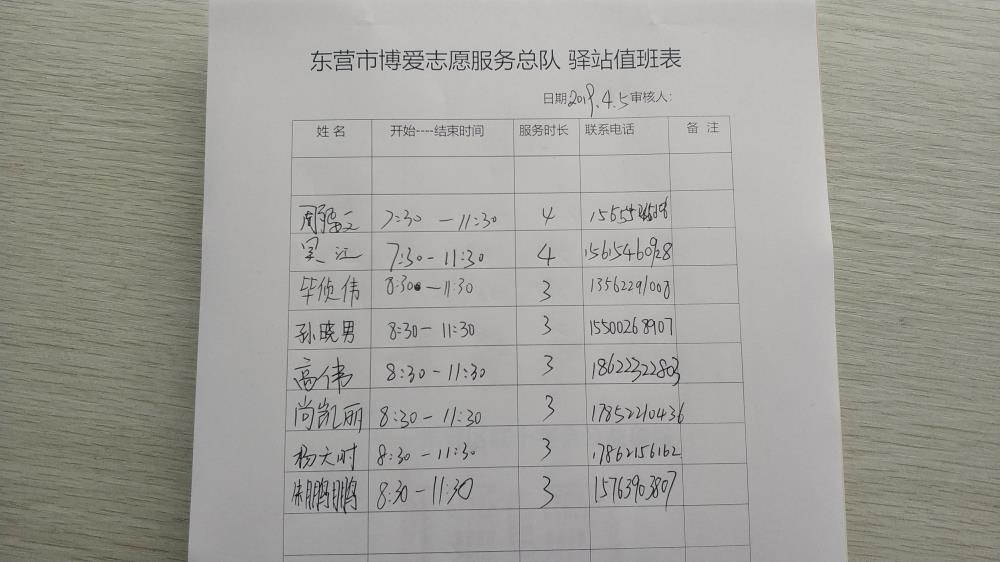 东营市博爱志愿服务总队 驿站值班表
日期2019.4.5审核人:
姓名 开始----结束时间 服务时长 联系电话 备 注
7:30 —11:30 4
吴江 7:30- 11:30 4 15615460928
毕侦伟 8:30 —11:30 3 13562291008
孙晓男 8:30— 11:30 3 15500268907
高伟 8:30 — 11:30 3 18622322803
尚凯丽 8:30 — 11:30 3 17852210436
杨天时 8:30 — 11:30 3 17862156162
朱鹏鹏 8:30 — 11:30 3 15763903807